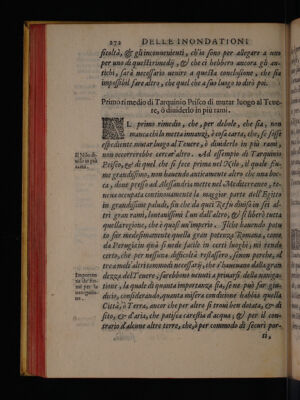 272 DELLE INONDATIONI
ficoltà, & gl'inconuenienti, ch'io sono per allegare a uno
per uno di questi rimedij, & che ci hebbero ancora gli an-
tichi, sarà necessario uenire a questa conclusione, che sia
impossibil fare altro, che quel che a suo luogo si dirò poi.
Primo rimedio di Tarquinio Prisco di mutar luogo al Teue-
re, ò diuiderlo in più rami.
AL primo rimedio, che, per debole, che sia, non
manca chi lo metta innanzi, è cosa certa, che, se fusse
espediente mutar luogo al Teuere, ò diuiderlo in più rami,
non occorrerebbe cercar altro. Ad essempio di Tarquinio
Prisco, & di quel che si fece prima nel Nilo, al quale fiu-
me grandissimo, non hauendo anticamente altro che una boc-
ca, doue presso ad Alessandria mette nel Mediterraneo, te-
neua occupata continuamente la maggior parte dell'Egitto
in grandissime paludi, sin che da quei Re fu diuiso in sei al-
tri gran rami, lontanissimi l'un dall'altro, & si liberò tutta
quella regione, che è quasi un'imperio. Il che hauendo potu
to far medesimamente quella gran potenza Romana, come
da Perugia in quà si uede facile in certi luoghi, mi rendo
certo, che per nessuna difficoltà restassero, se non perche, al
tre a molti altri scommodi necessarij, che s'haueuano dalla gran
dezza del Teuere, sarebbono uenuti a priuarsi della nauiga-
tione, la quale di quanta importanza sia, se ne può far giu-
dicio, considerando, quanta misera conditione habbia quella
Città, ò Terra, ancor che per altro si troui ben dotata, & di
sito, & d'aria, che patisca carestia d'acqua, & per il con-
trario d'alcune altre terre, che, ò per commodo di securi por-
ti,
Il Nilo di-
uiso in più
rami.
Importan-
za de' fiu-
mi per la
nauigatio-
ne.